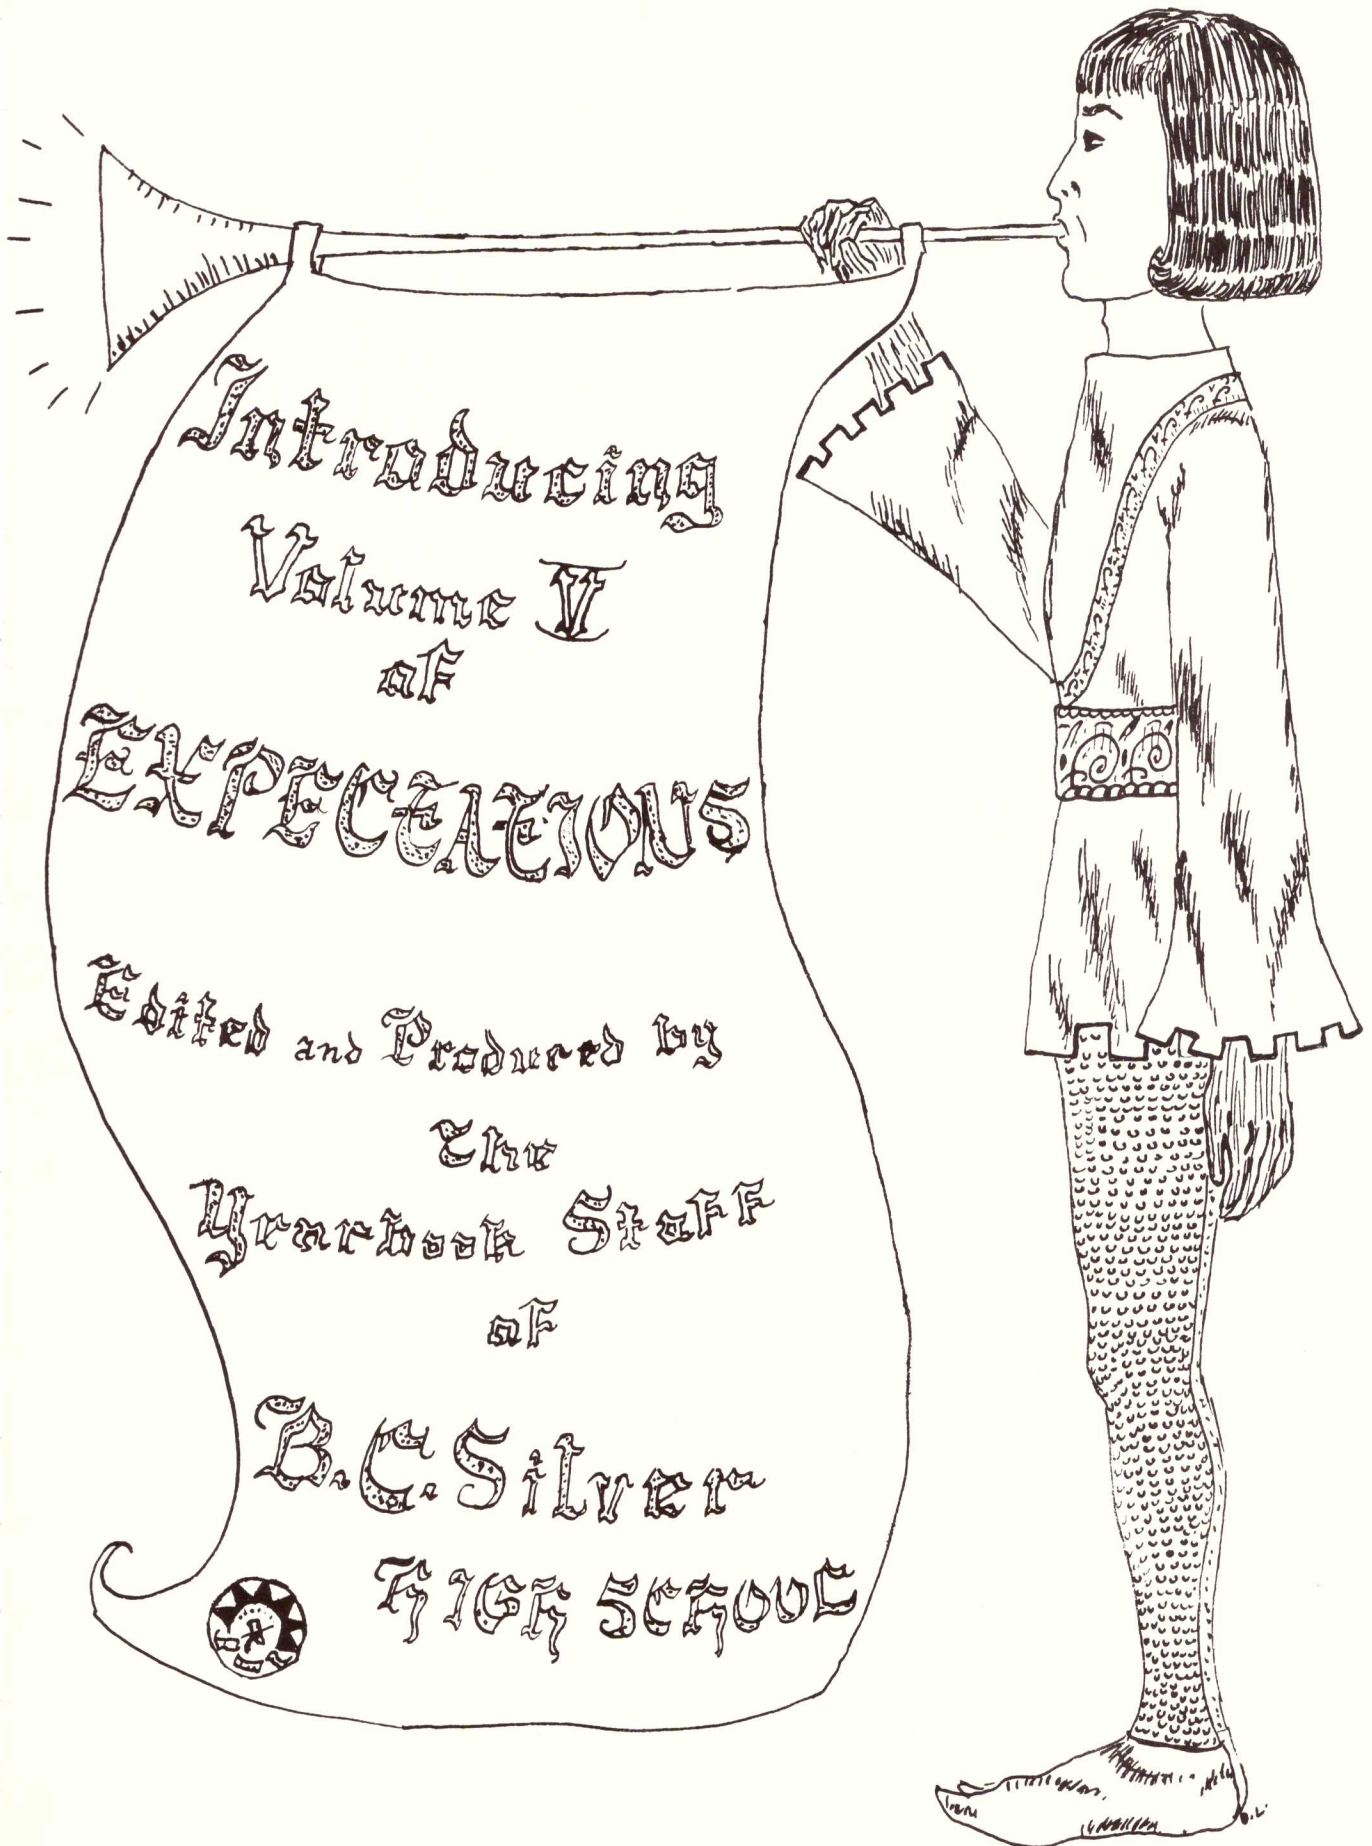 Introducing
Volume V
of
EXPECTATIONS
Edited and Produced by
The
Yearbook Staff
of
B.C. Silver
HIGH SCHOOL